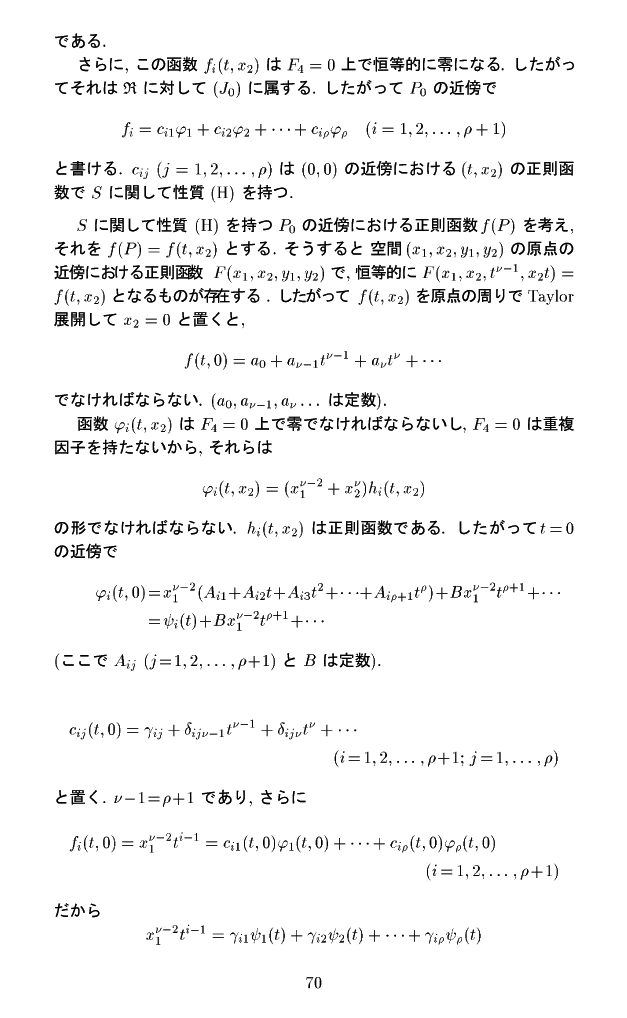 である.
さらに, この函数 f_i(t, x_2) は F_4 = 0 上で恒等的に零になる. したがっ
てそれは ℜ に対して (J_0) に属する. したがって P_0 の近傍で
f_i = c_{i1}φ_1 + c_{i2}φ_2 + ··· + c_{iρ}φ_ρ (i = 1, 2, ... , ρ + 1)
と書ける. c_{ij} (j = 1, 2, ... , ρ) は (0, 0) の近傍における (t, x_2) の正則函
数で S に関して性質 (H) を持つ.
S に関して性質 (H) を持つ P_0 の近傍における正則函数 f(P) を考え,
それを f(P) = f(t, x_2) とする. そうすると 空間 (x_1, x_2, y_1, y_2) の原点の
近傍における正則函数 F(x_1, x_2, y_1, y_2) で, 恒等的に F(x_1, x_2, t^{ν−1}, x_2t) =
f(t, x_2) となるものが存在する . したがって f(t, x_2) を原点の周りで Taylor
展開して x_2 = 0 と置くと,
f(t, 0) = a_0 + a_{ν−1}t^{ν−1} + a_νt^ν + ···
でなければならない. (a_0, a_{ν−1}, a_ν ... は定数).
函数 φ_i(t, x_2) は F_4 = 0 上で零でなければならないし, F_4 = 0 は重複
因子を持たないから, それらは
φ_i(t, x_2) = (x_1^{ν−2} + x_2^ν)h_i(t, x_2)
の形でなければならない. h_i(t, x_2) は正則函数である. したがって t = 0
の近傍で
φ_i(t, 0) = x_1^{ν−2}(A_{i1} + A_{i2}t + A_{i3}t^2 + ··· + A_{iρ+1}t^ρ) + Bx_1^{ν−2}t^{ρ+1} + ···
= ψ_i(t) + Bx_1^{ν−2}t^{ρ+1} + ···
(ここで A_{ij} (j = 1, 2, ... , ρ+1) と B は定数).
c_{ij}(t, 0) = γ_{ij} + δ_{ijν−1}t^{ν−1} + δ_{ijν}t^ν + ···
(i = 1, 2, ... , ρ+1; j = 1, ... , ρ)
と置く. ν − 1 = ρ + 1 であり, さらに
f_i(t, 0) = x_1^{ν−2}t^{i−1} = c_{i1}(t, 0)φ_1(t, 0) + ··· + c_{iρ}(t, 0)φ_ρ(t, 0)
(i = 1, 2, ... , ρ+1)
だから
x_1^{ν−2}t^{i−1} = γ_{i1}ψ_1(t) + γ_{i2}ψ_2(t) + ··· + γ_{iρ}ψ_ρ(t)
70